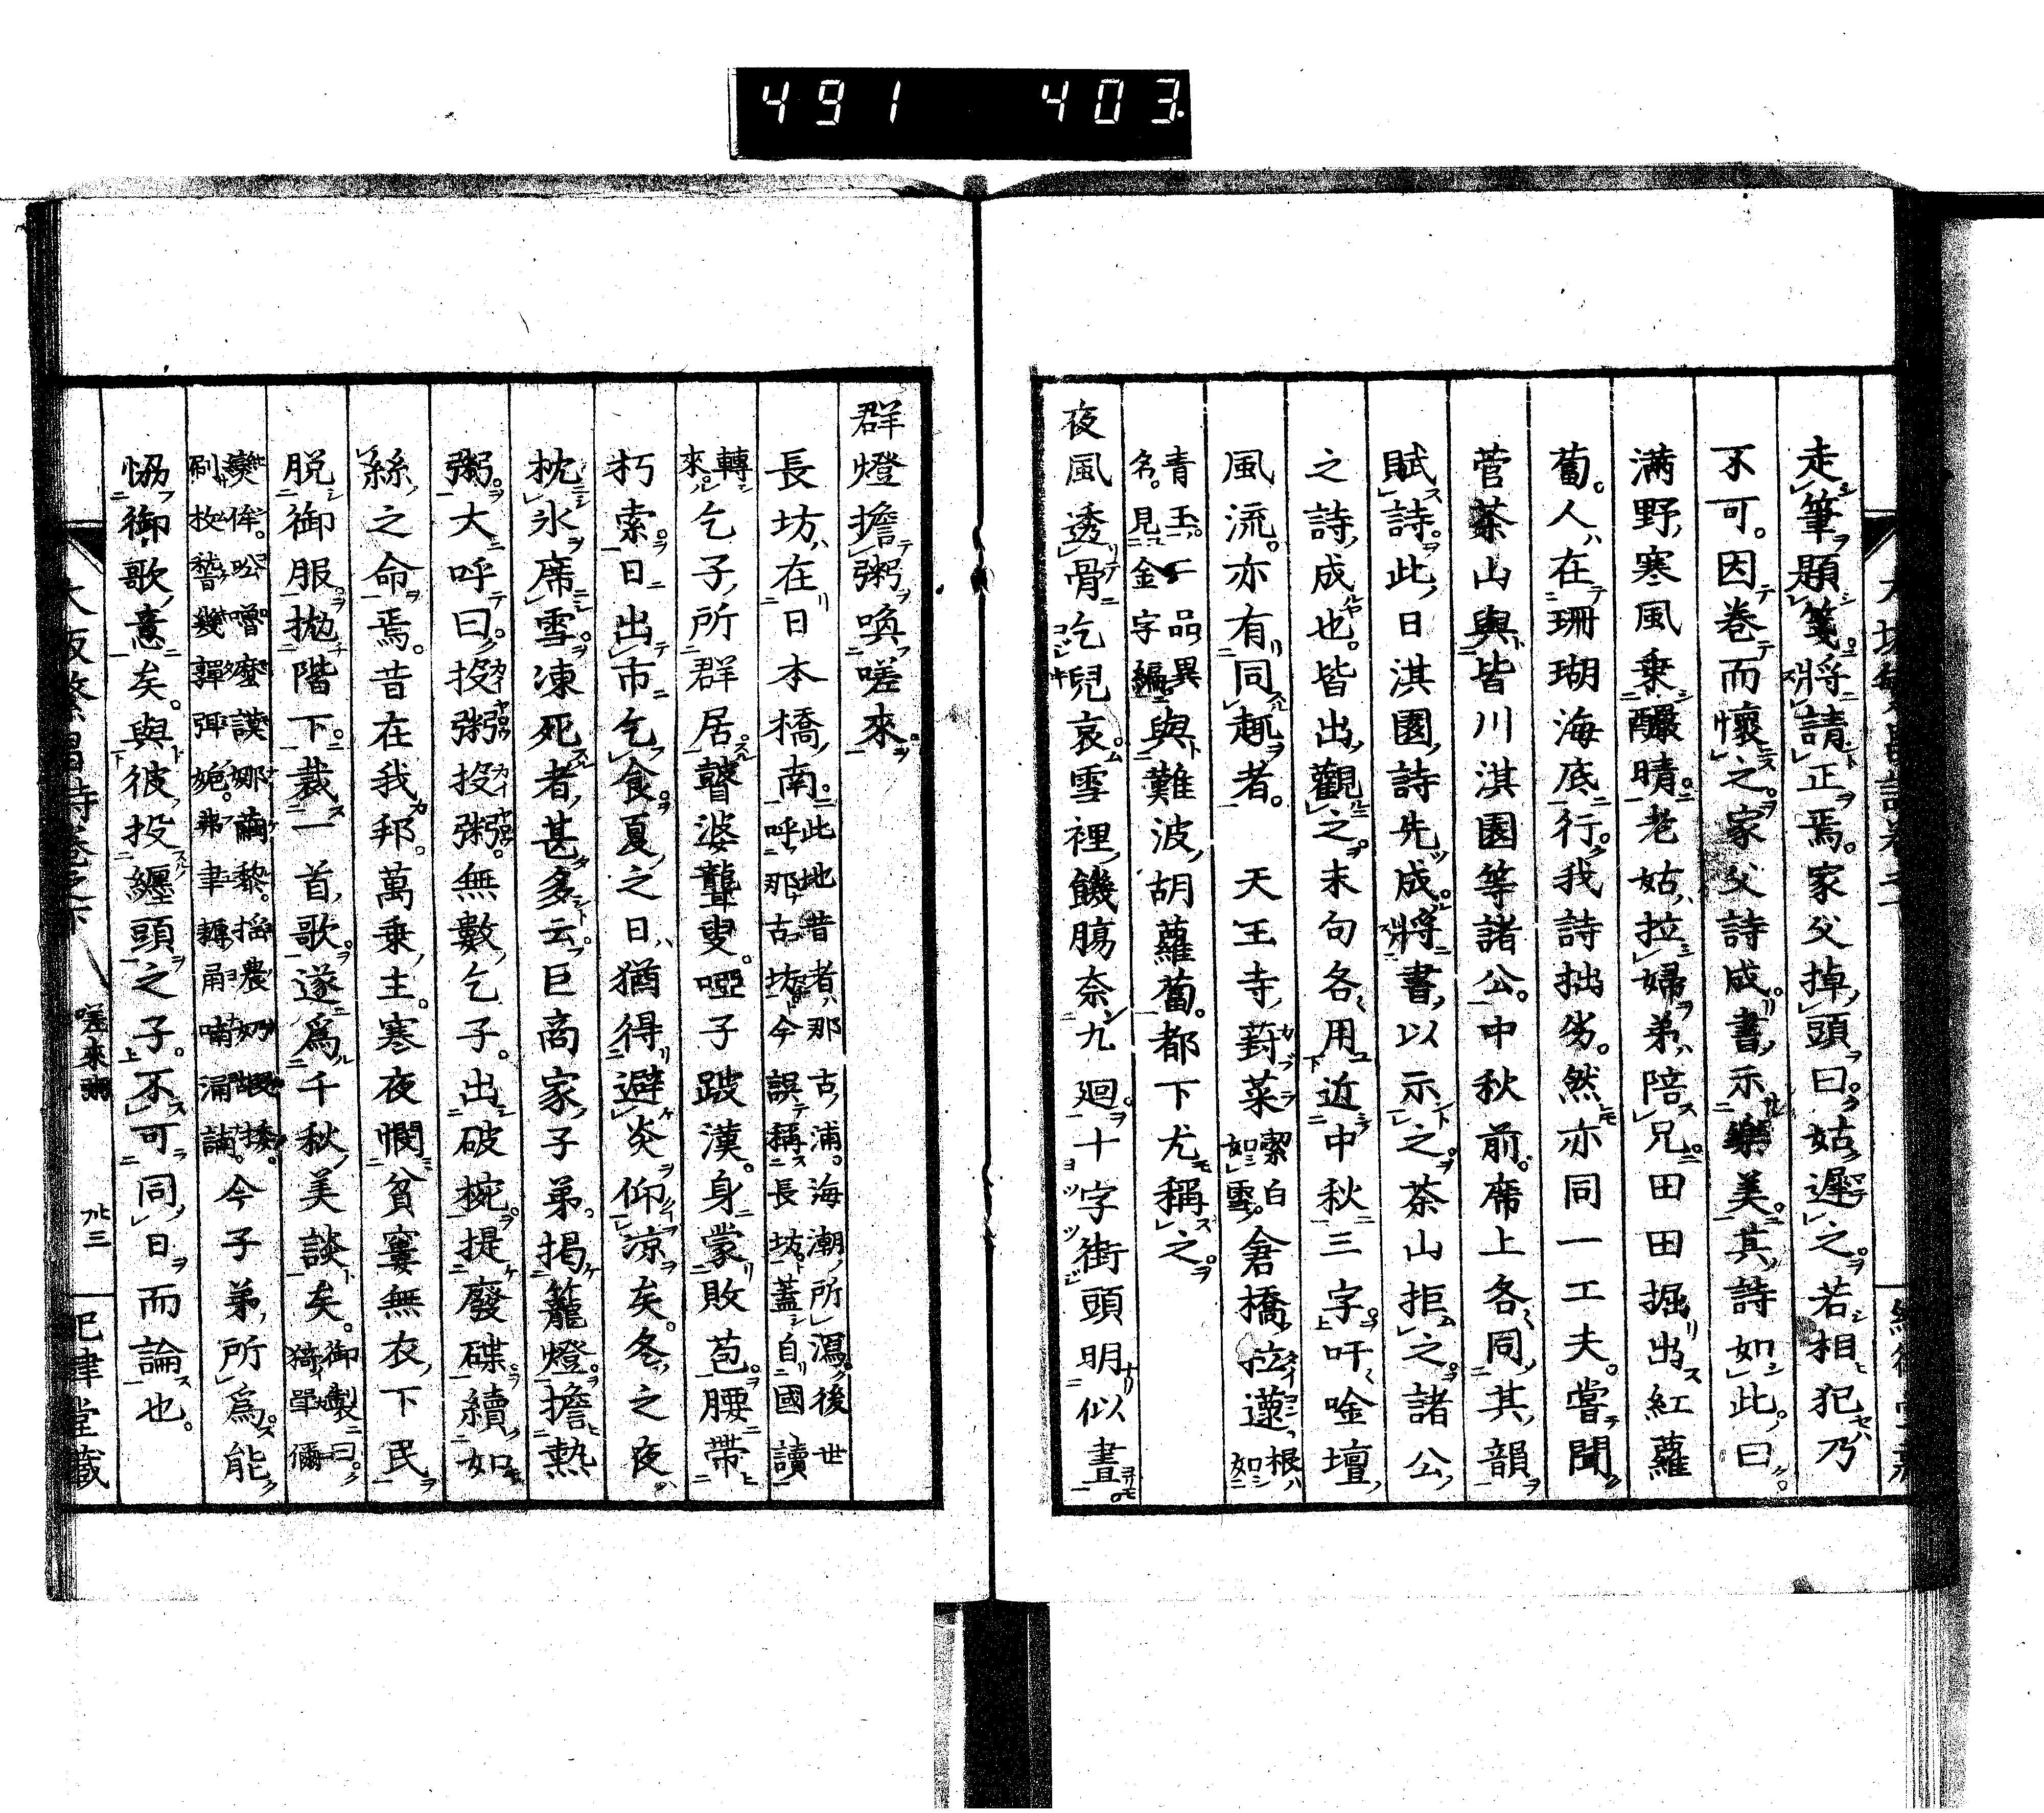 491 403.
走筆題箋將請正焉。家父掉頭曰姑遲之。若相犯乃
不可。因卷而懷之。家父詩成。書示樂美。其詩如此。曰
滿野寒風乘釅晴。老姑拉婦弟陪兄。田田掘出紅蘿
蔔。人在珊瑚海底行。我詩拙劣。然亦同一工夫。嘗聞
菅茶山與皆川淇園等諸公。中秋前。席上各同其韻
賦詩。此日淇園詩先成。將書以示之。茶山拒之。諸公
之詩成也。皆出觀之。末句各用近中秋三字。吁唫壇
風流。亦有同趣者。 天王寺葑菜潔白如雪。倉橋拉蘧根如
青玉。二品異名。見金字編與難波胡蘿蔔。都下尤稱之。
夜風透骨乞兒哀雪裡饑腸奈九廻十字街頭明似晝
群燈擔粥喚嗟來
長坊在日本橋南。此地昔者那古浦。海潮所瀉。後世呼那古坊今誤稱長坊蓋自國讀
轉來。乞子所群居。瞽婆聾叟。啞子跛漢。身蒙敗苞。腰帶
朽索。日出市乞食。夏之日猶得避炎仰凉矣。冬之夜
枕氷席雪。凍死者甚多云。巨商家子弟。揭籠燈。擔熱
粥。大呼曰。投粥投粥。無數乞子。出破椀。提廢碟。續如
絲之命焉。昔在我邦。萬乘主。寒夜憫貧窶無衣下民
脱御服。拋階下。裁一首歌。遂為千秋美談矣。御製曰。
今子弟所為。能
恊御歌意矣。與彼投纏頭之子。不可同日而論也。
嗟來粥
卅三